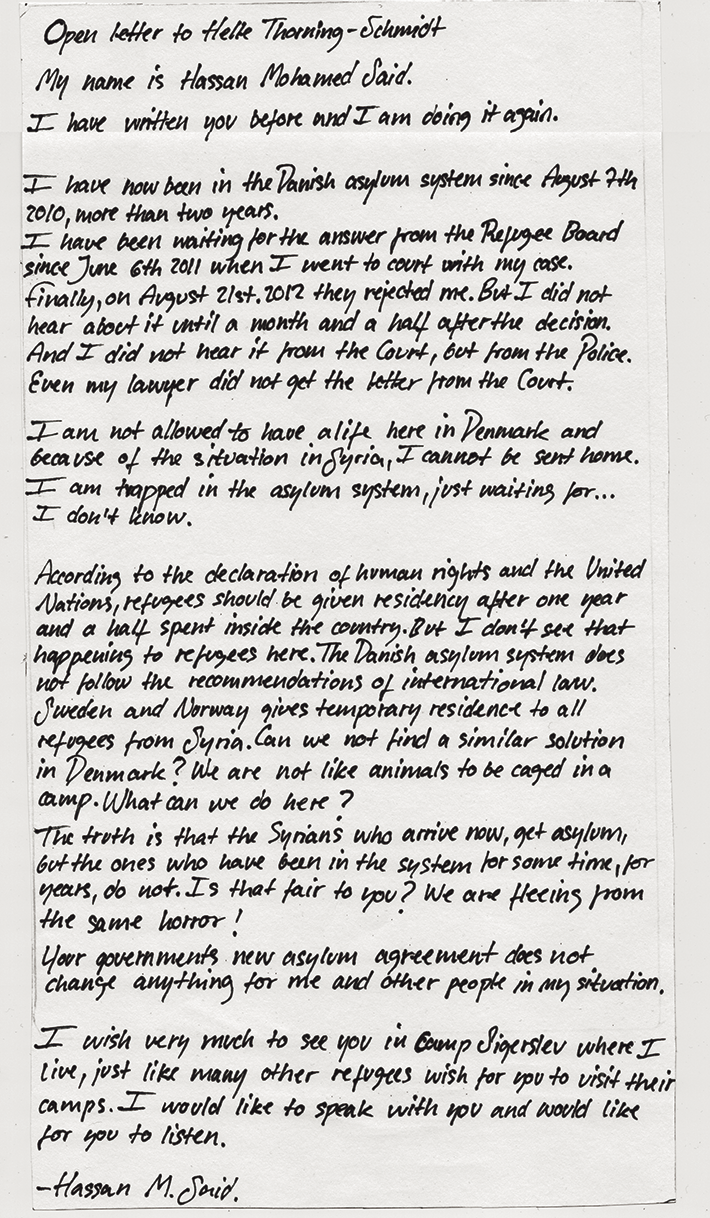 Open letter to Helle Thorning-Schmidt
My name is Hassan Mohamed Said.
I have written you before and I am doing it again.
I have now been in the Danish asylum system since August 7th
2010, more than two years.
I have been waiting for the answer from the Refugee Board
since June 6th 2011 when I went to court with my case.
Finally, on August 21st. 2012 they rejected me. But I did not
hear about it until a month and a half after the decision.
And I did not hear it from the Court, but from the Police.
Even my lawyer did not get the letter from the Court.
I am not allowed to have a life here in Denmark and
because of the situation in Syria, I cannot be sent home.
I am trapped in the asylum system, just waiting for...
I don't know.
According to the declaration of human rights and the United
Nations, refugees should be given residency after one year
and a half spent inside the country. But I don't see that
happening to refugees here. The Danish asylum system does
not follow the recommendations of international law.
Sweden and Norway gives temporary residence to all
refugees from Syria. Can we not find a similar solution
in Denmark? We are not like animals to be caged in a
camp. What can we do here?
The truth is that the Syrian's who arrive now, get asylum,
but the ones who have been in the system for some time, for
years, do not. Is that fair to you? We are fleeing from
the same horror!
Your governments new asylum agreement does not
change anything for me and other people in my situation.
I wish very much to see you in Camp Sigerslev where I
live, just like many other refugees wish for you to visit their
camps. I would like to speak with you and would like
for you to listen.
-Hassan M. Said.